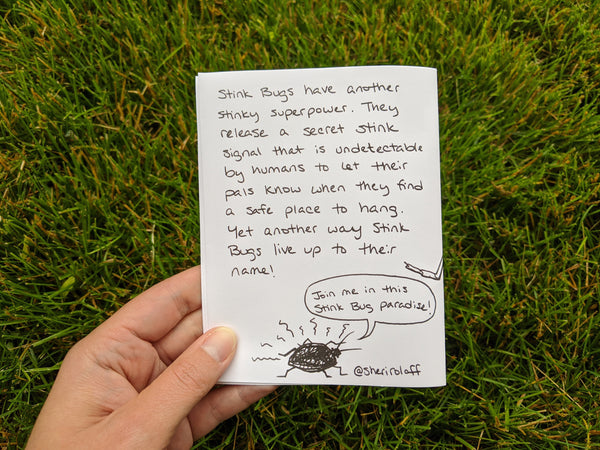 Stink Bugs have another
stinky superpower. They
release a secret stink
signal that is undetectable
by humans to let their
pals know when they find
a safe place to hang.
Yet another way Stink
Bugs live up to their
name!
Join me in this
Stink Bug paradise!
@sherirolaff